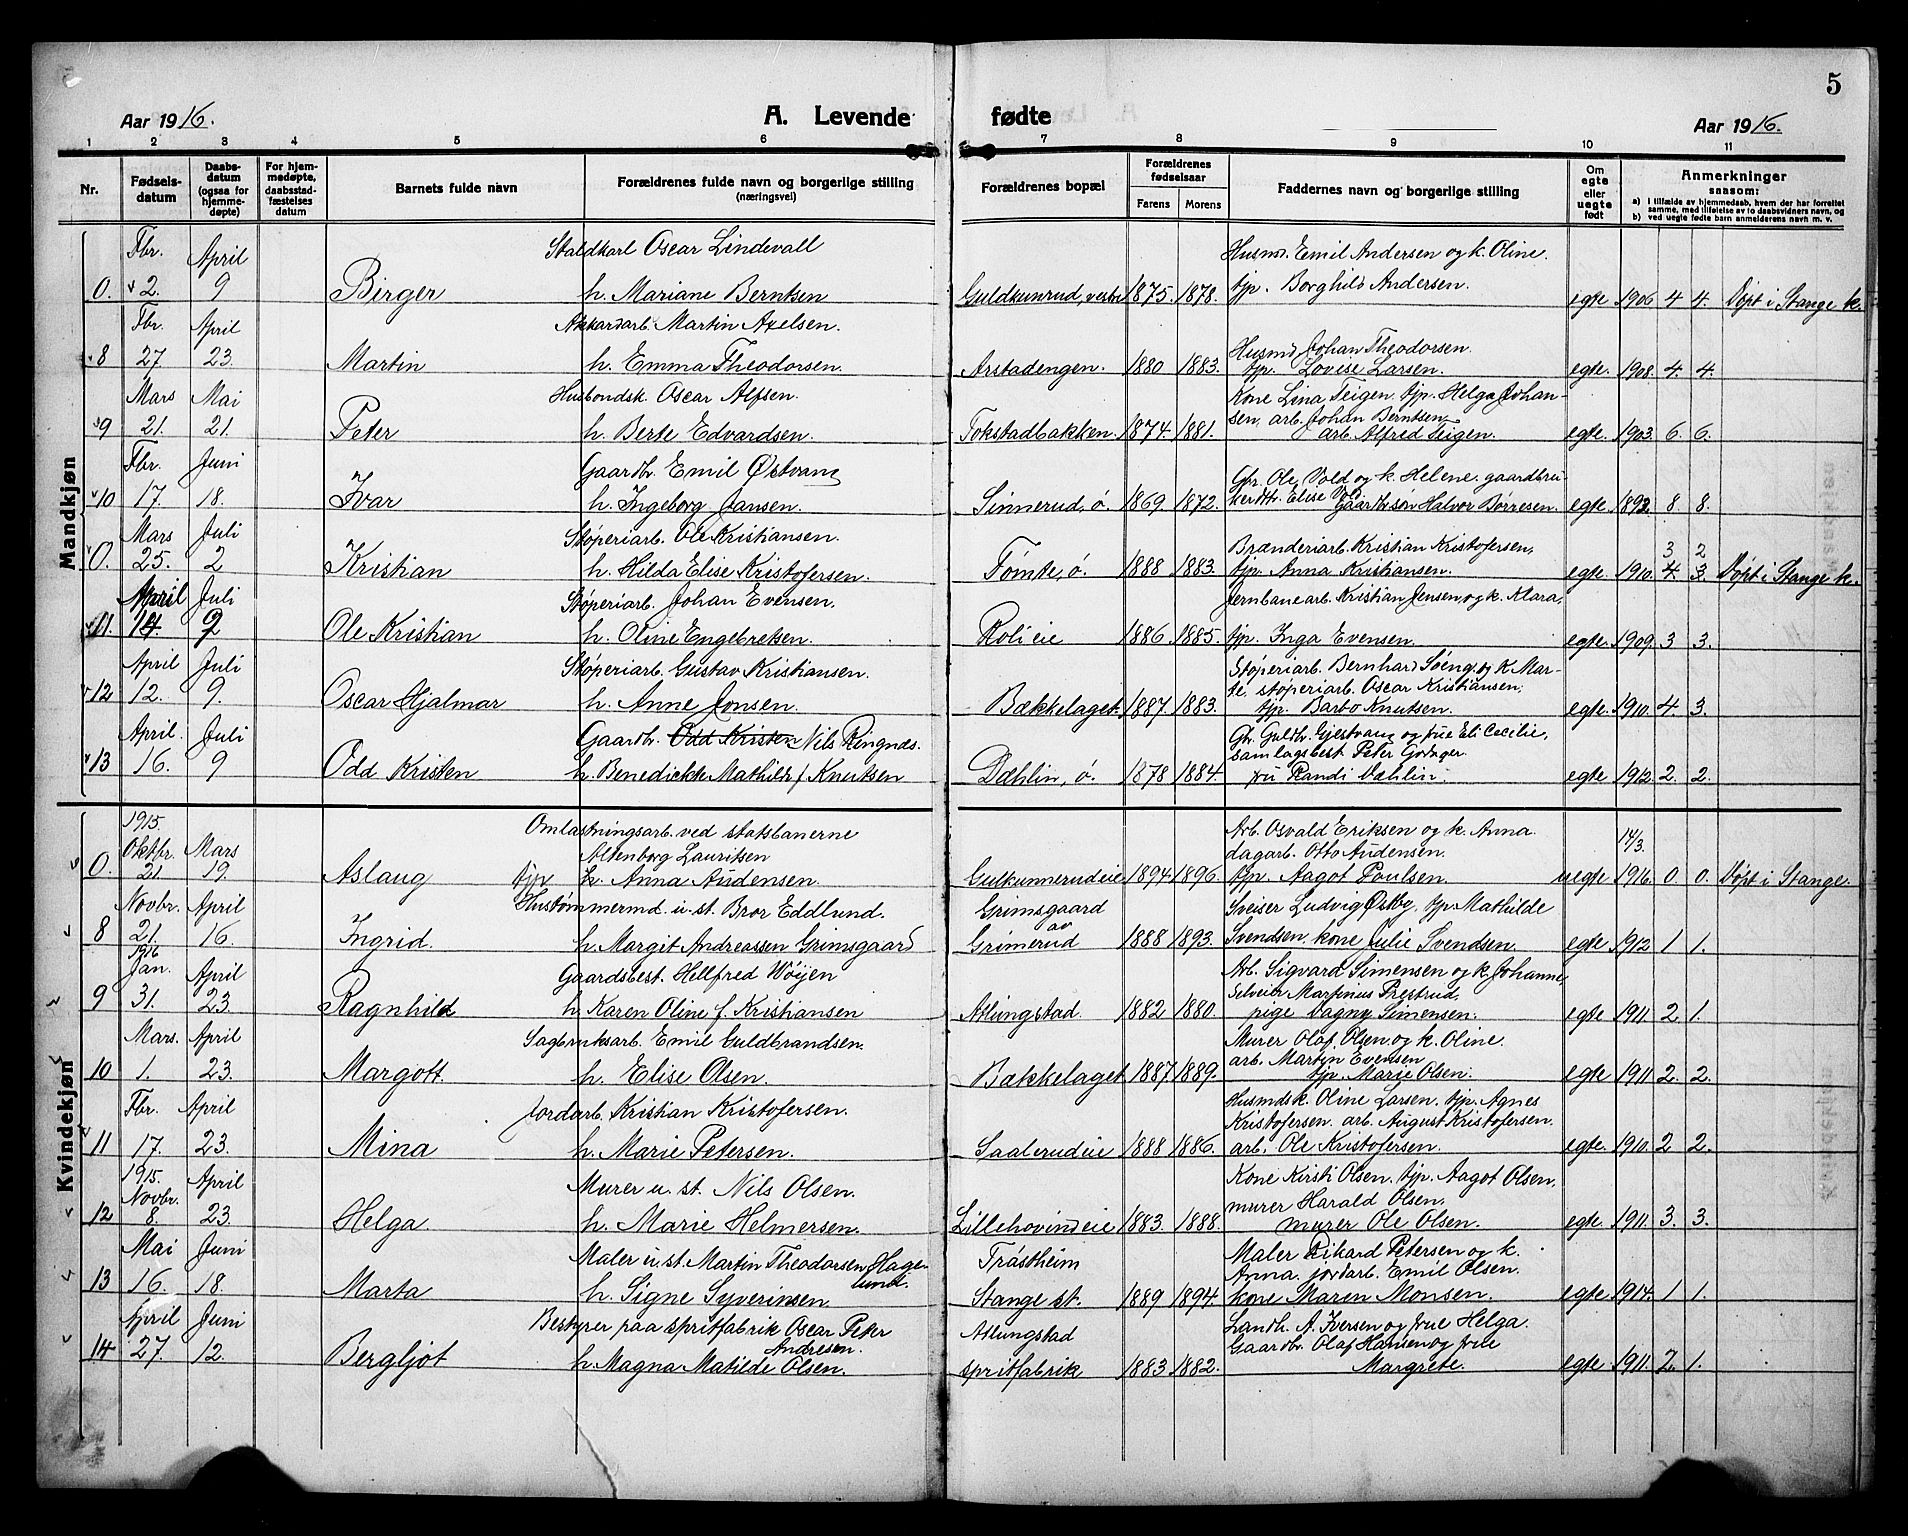 5
Aar 1916.
A. Levende
fødte
Aar 1916.
1 2 3 4 5 6 7 8 9 10 11
Nr.
Fødselsdatum
Daabsdatum (ogsaa for hjemmedøpte)
For hjemmedøpte, daabsstadfæstelses datum
Barnets fulde navn
Forældrenes fulde navn og borgerlige stilling (næringsvei)
Forældrenes bopæl
Forældrenes fødselsaar
Farens
Morens
Faddernes navn og borgerlige stilling
Om egte eller uegte født
Anmerkninger saasom:
a) i tilfælde av hjemmedaab, hvem der har forrettet samme, med tilføielse av to daabsvidners navn, og
b) ved uegte fødte barn anmelderens navn m. v.
Mandkjøn
Fbr. April Staldkarl Oscar Lindevall Husmd. Emil Andersen og k. Oline.
0. 2. 9 Birger h. Mariane Berntsen Guldkunrud, vestre 1875. 1878. tjp. Borghild Andersen. egte 1906 4 4. Døpt i Stange k.
Fbr. April Akkordarb. Martin Axelsen. Husmd Johan Theodorsen.
8 27. 23. Martin h. Emma Theodorsen. Arstadengen. 1880 1883. tjp. Lovise Larsen. egte. 1908. 4. 4.
Mars Mai Husbondsk. Oscar Alfsen. Kone Lina Teigen, tjp. Helga Johan-
sen, arb. Johan Berntsen
9 21. 21. Peter h. Berte Edvardsen. Tokstadbakken 1874. 1881. arb. Alfred Teigen. egte. 1903. 6. 6.
Fbr. Juni Gaardbr. Emil Østvang Gbr. Ole Vold og k. Helene. gaardbru-
10 17. 18. Ivar h. Ingeborg Jansen. Sinnerud, ø. 1869. 1872. kerdtr. Elise Vold Gaardbr.søn Halvor Børresen. egte 1892. 8. 8.
Mars Juli Støperiarb. Ole Kristiansen. Brænderiarb. Kristian Kristofersen, 3 2
0. 25. 2 Kristian h. Hilda Elise Kristofersen. Tømte, ø. 1888 1883. tjp. Anna Kristiansen. egte 1910. 4. 3. Døpt i Stange k.
April Juli Støperiarb. Johan Evensen. Jernbanearb. Kristian Jensen, og k. Klara,
11. 14. 9 Ole Kristian h. Oline Engebretsen. Roli eie 1886 1885. tjp. Inga Evensen. egte. 1909. 3 3.
April Juli Støperiarb. Gustav Kristiansen. Støperiarb. Bernhard Søeng. og k Mar-
te, støperiarb. Oscar Kristiansen,
12 12. 9. Oscar Hjalmar h. Anne Jonsen. Bækkelaget. 1887. 1883. tjp. Barbo Knutsen. egte. 1910. 4. 3.
April. Juli Gaardbr. Odd Kristen Nils Ringnes.
samlagsbest. Peter
13 16. 9 Odd Kristen h. Benedickte Mathilde f. Knutsen Dæhlin, ø. 1878 1884. fru Randi Dæhlin. egte. 1912. 2. 2.
Kvindekjøn
1915. Omlastningsarb. ved statsbanerne Arb. Osvald Eriksen og k. Anna. 14/3.
Oktbr. Mars Altenborg Lauritsen dagarb. Otto Audensen.
0. 21 19. Aslaug tjp h. Anna Audensen. Gulkunnerudeie 1894 1896. tjp. Aagot Poulsen. uegte 1916. 0 0. Døpt i Stange.
Novbr. April Hustømmermd. u. st. Bror Eddlund. Grimsgaard Sveiser Ludvig Østby, tjp. Mathilde
8 21. 16. Ingrid. h. Margit Andreassen Grimsgaard av Grimerud 1888 1893. Svendsen, kone Julie Svendsen. egte 1912 1 1.
1916
Jan. April Gaardsbest. Hellfred Wøien Arb. Sigvard Simensen og k Johanne,
Selveier Martinus Prestrud,
9 31. 23. Ragnhild h. Karen Oline f. Kristiansen Atlungstad. 1882 1880. pige Dagny Simensen. egte 1911. 2. 1.
Mars. April Sagbruksarb. Emil Guldbrandsen. Murer Olaf Olsen og k. Oline.
arb. Martin Evensen
10 1. 23. Margott. h. Elise Olsen. Bækkelaget 1887 1889. tjp. Marie Olsen. egte 1911 2. 2.
Fbr. April Jordarb. Kristian Kristofersen. Husmdsk. Oline Larsen. tjp. Agnes
Kristofersen. arb. August Kristofersen.
11 17. 23. Mina h. Marie Petersen. Saalerudeie 1888 1886. arb. Ole Kristofersen. egte. 1910. 2 2.
1915. April Murer u. st. Nils Olsen. Kone Kirsti Olsen. tjp. Aagot Olsen.
Novbr. murer Harald Olsen.
12 8. 23. Helga h. Marie Helmersen. Lillehovindeie 1883. 1888. murer Ole Olsen. egte. 1911. 3. 3.
Mai Juni Maler u. st. Martin Theodorsen Hage- Trøstheim Maler Rikard Petersen og k.
lund. Anna. jordarb. Emil Olsen.
13 16. 18. Marta h. Signe Syverinsen. Stange st. 1889 1894. kone Maren Monsen. egte 1914. 1 1.
April Juni Bestyrer paa spritfabrik Oscar Peter Atlungstad Landh. A. Iversen og frue Helga.
Andresen. Gaardbr. Olaf Hansen og frue
14 27. 12. Bergljot h. Magna Matilde Olsen. spritfabrik 1883 1882. Margrete. egte. 1911. 2. 1.